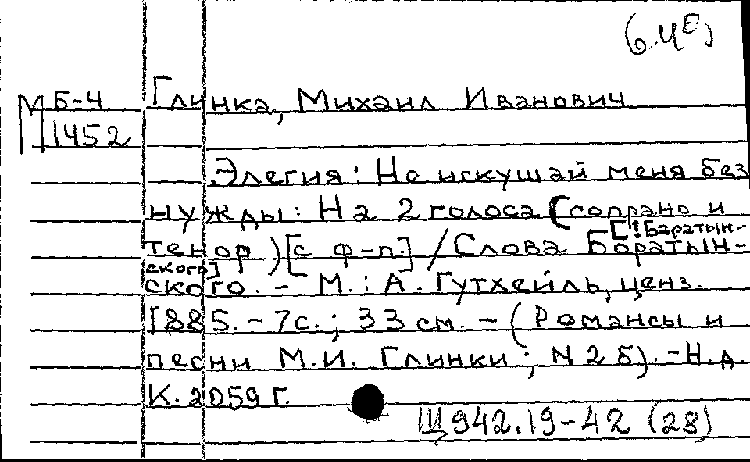 (6.40)
М Б-4 Глинка, Михаил Иванович
1452
Элегия: Не искушай меня без
нужды: На 2 голоса (сопрано и
[! Баратын-
тенор) [с ф-п.] / Слова Боратын-
ского]
ского. - М.: А. Гутхейль, ценз.
1885. - 7с.; 33 см. - (Романсы и
песни М.И. Глинки; N 2 б). - Н.д.
К. 2059 Г.
Щ942.19-42 (28)